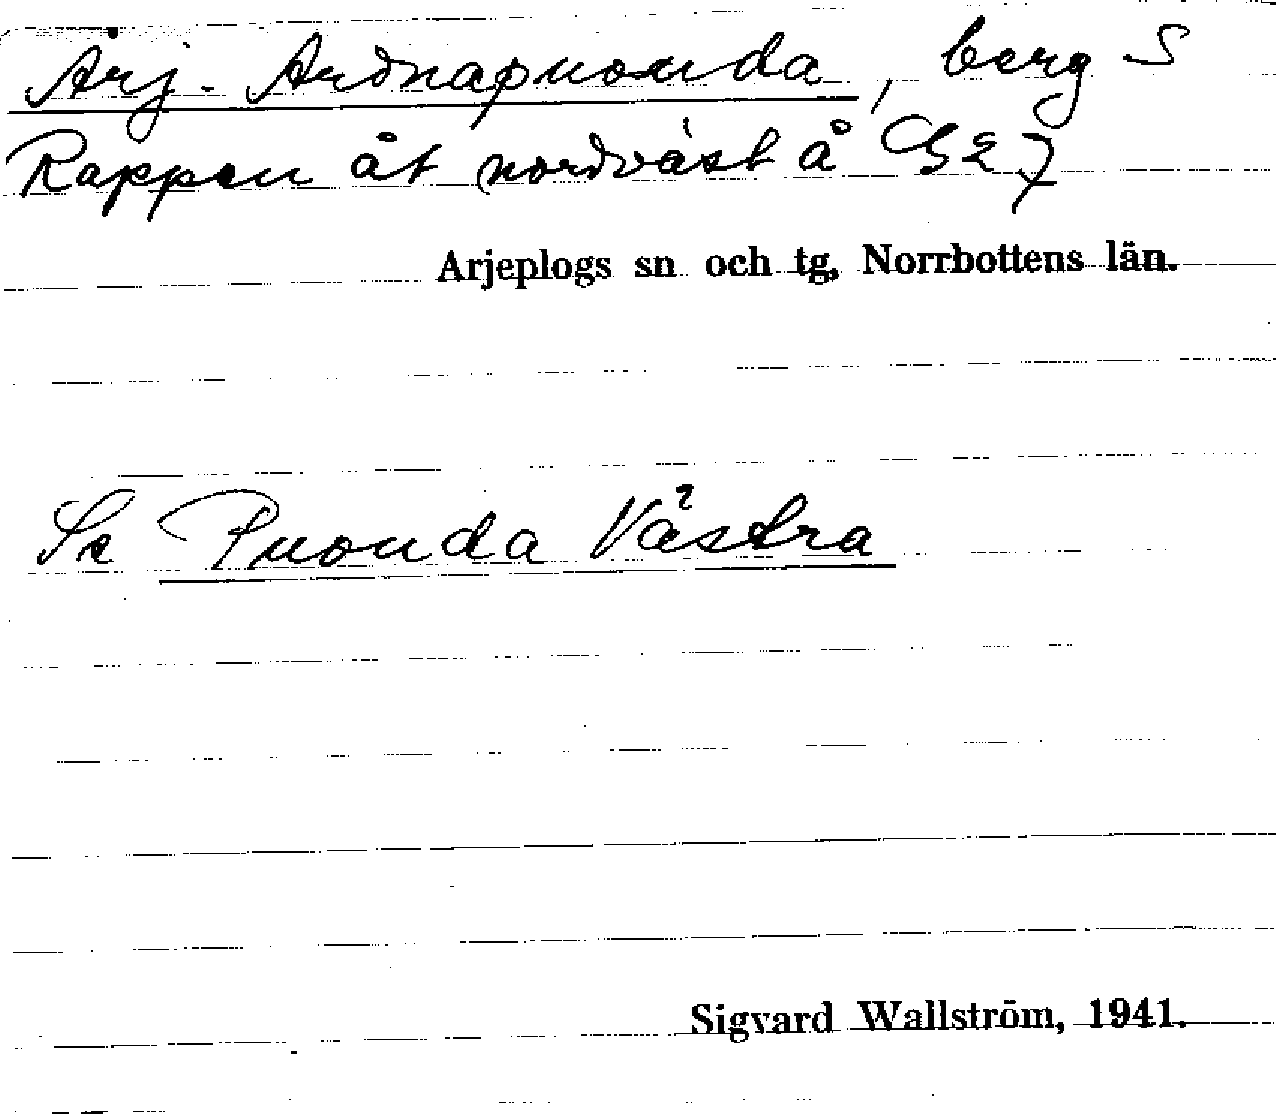 Arj. Arðnapuouda, berg S
Rappen åt nordväst å G27
Arjeplogs sn och tg, Norrbottens län.
Se Puouda Västra
Sigvard Wallström, 1941.